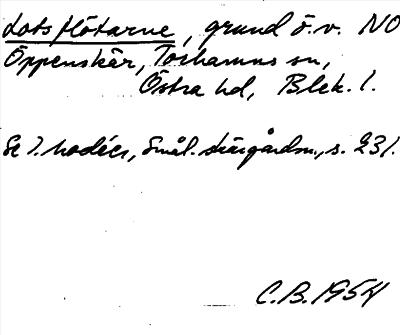 Lotsflötarne, grund ö.v. NO
Öppenskär, Torhamns sn,
Östra hd, Blek. l.
Se I. Modéer, Smål. skärgårdsn., s. 231.
C.B. 1954